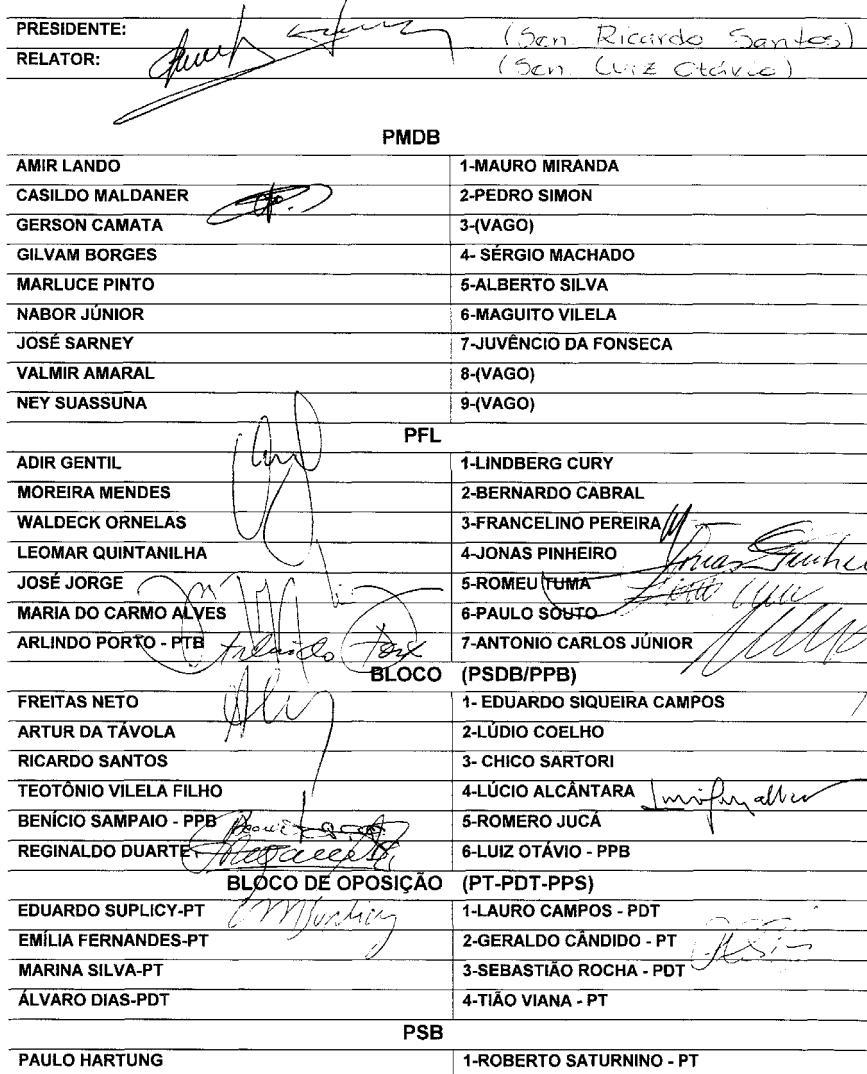 PRESIDENTE: (Sen Ricardo Santos)
RELATOR: (Sen Luiz Otávio)
PMDB
AMIR LANDO 1-MAURO MIRANDA
CASILDO MALDANER 2-PEDRO SIMON
GERSON CAMATA 3-(VAGO)
GILVAM BORGES 4- SÉRGIO MACHADO
MARLUCE PINTO 5-ALBERTO SILVA
NABOR JÚNIOR 6-MAGUITO VILELA
JOSÉ SARNEY 7-JUVÊNCIO DA FONSECA
VALMIR AMARAL 8-(VAGO)
NEY SUASSUNA 9-(VAGO)
PFL
ADIR GENTIL 1-LINDBERG CURY
MOREIRA MENDES 2-BERNARDO CABRAL
WALDECK ORNELAS 3-FRANCELINO PEREIRA
LEOMAR QUINTANILHA 4-JONAS PINHEIRO
JOSÉ JORGE 5-ROMEU TUMA
MARIA DO CARMO ALVES 6-PAULO SOUTO
ARLINDO PORTO - PTB 7-ANTONIO CARLOS JÚNIOR
BLOCO (PSDB/PPB)
FREITAS NETO 1- EDUARDO SIQUEIRA CAMPOS
ARTUR DA TÁVOLA 2-LÚDIO COELHO
RICARDO SANTOS 3- CHICO SARTORI
TEOTÔNIO VILELA FILHO 4-LÚCIO ALCÂNTARA
BENÍCIO SAMPAIO - PPB 5-ROMERO JUCÁ
REGINALDO DUARTE 6-LUIZ OTÁVIO - PPB
BLOCO DE OPOSIÇÃO (PT-PDT-PPS)
EDUARDO SUPLICY-PT 1-LAURO CAMPOS - PDT
EMÍLIA FERNANDES-PT 2-GERALDO CÂNDIDO - PT
MARINA SILVA-PT 3-SEBASTIÃO ROCHA - PDT
ÁLVARO DIAS-PDT 4-TIÃO VIANA - PT
PSB
PAULO HARTUNG 1-ROBERTO SATURNINO - PT